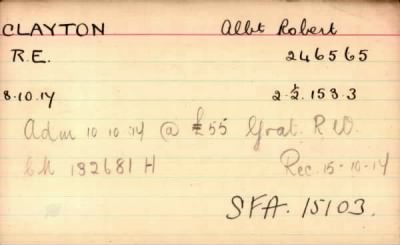 CLAYTON Albt Robert
R.E. 246565
8.10.17 2.½.153.3
Adm 10 10 17 @ £55 Grat. R.W.
Ch 132681 H Rec. 15-10-17
SFA. 15103.